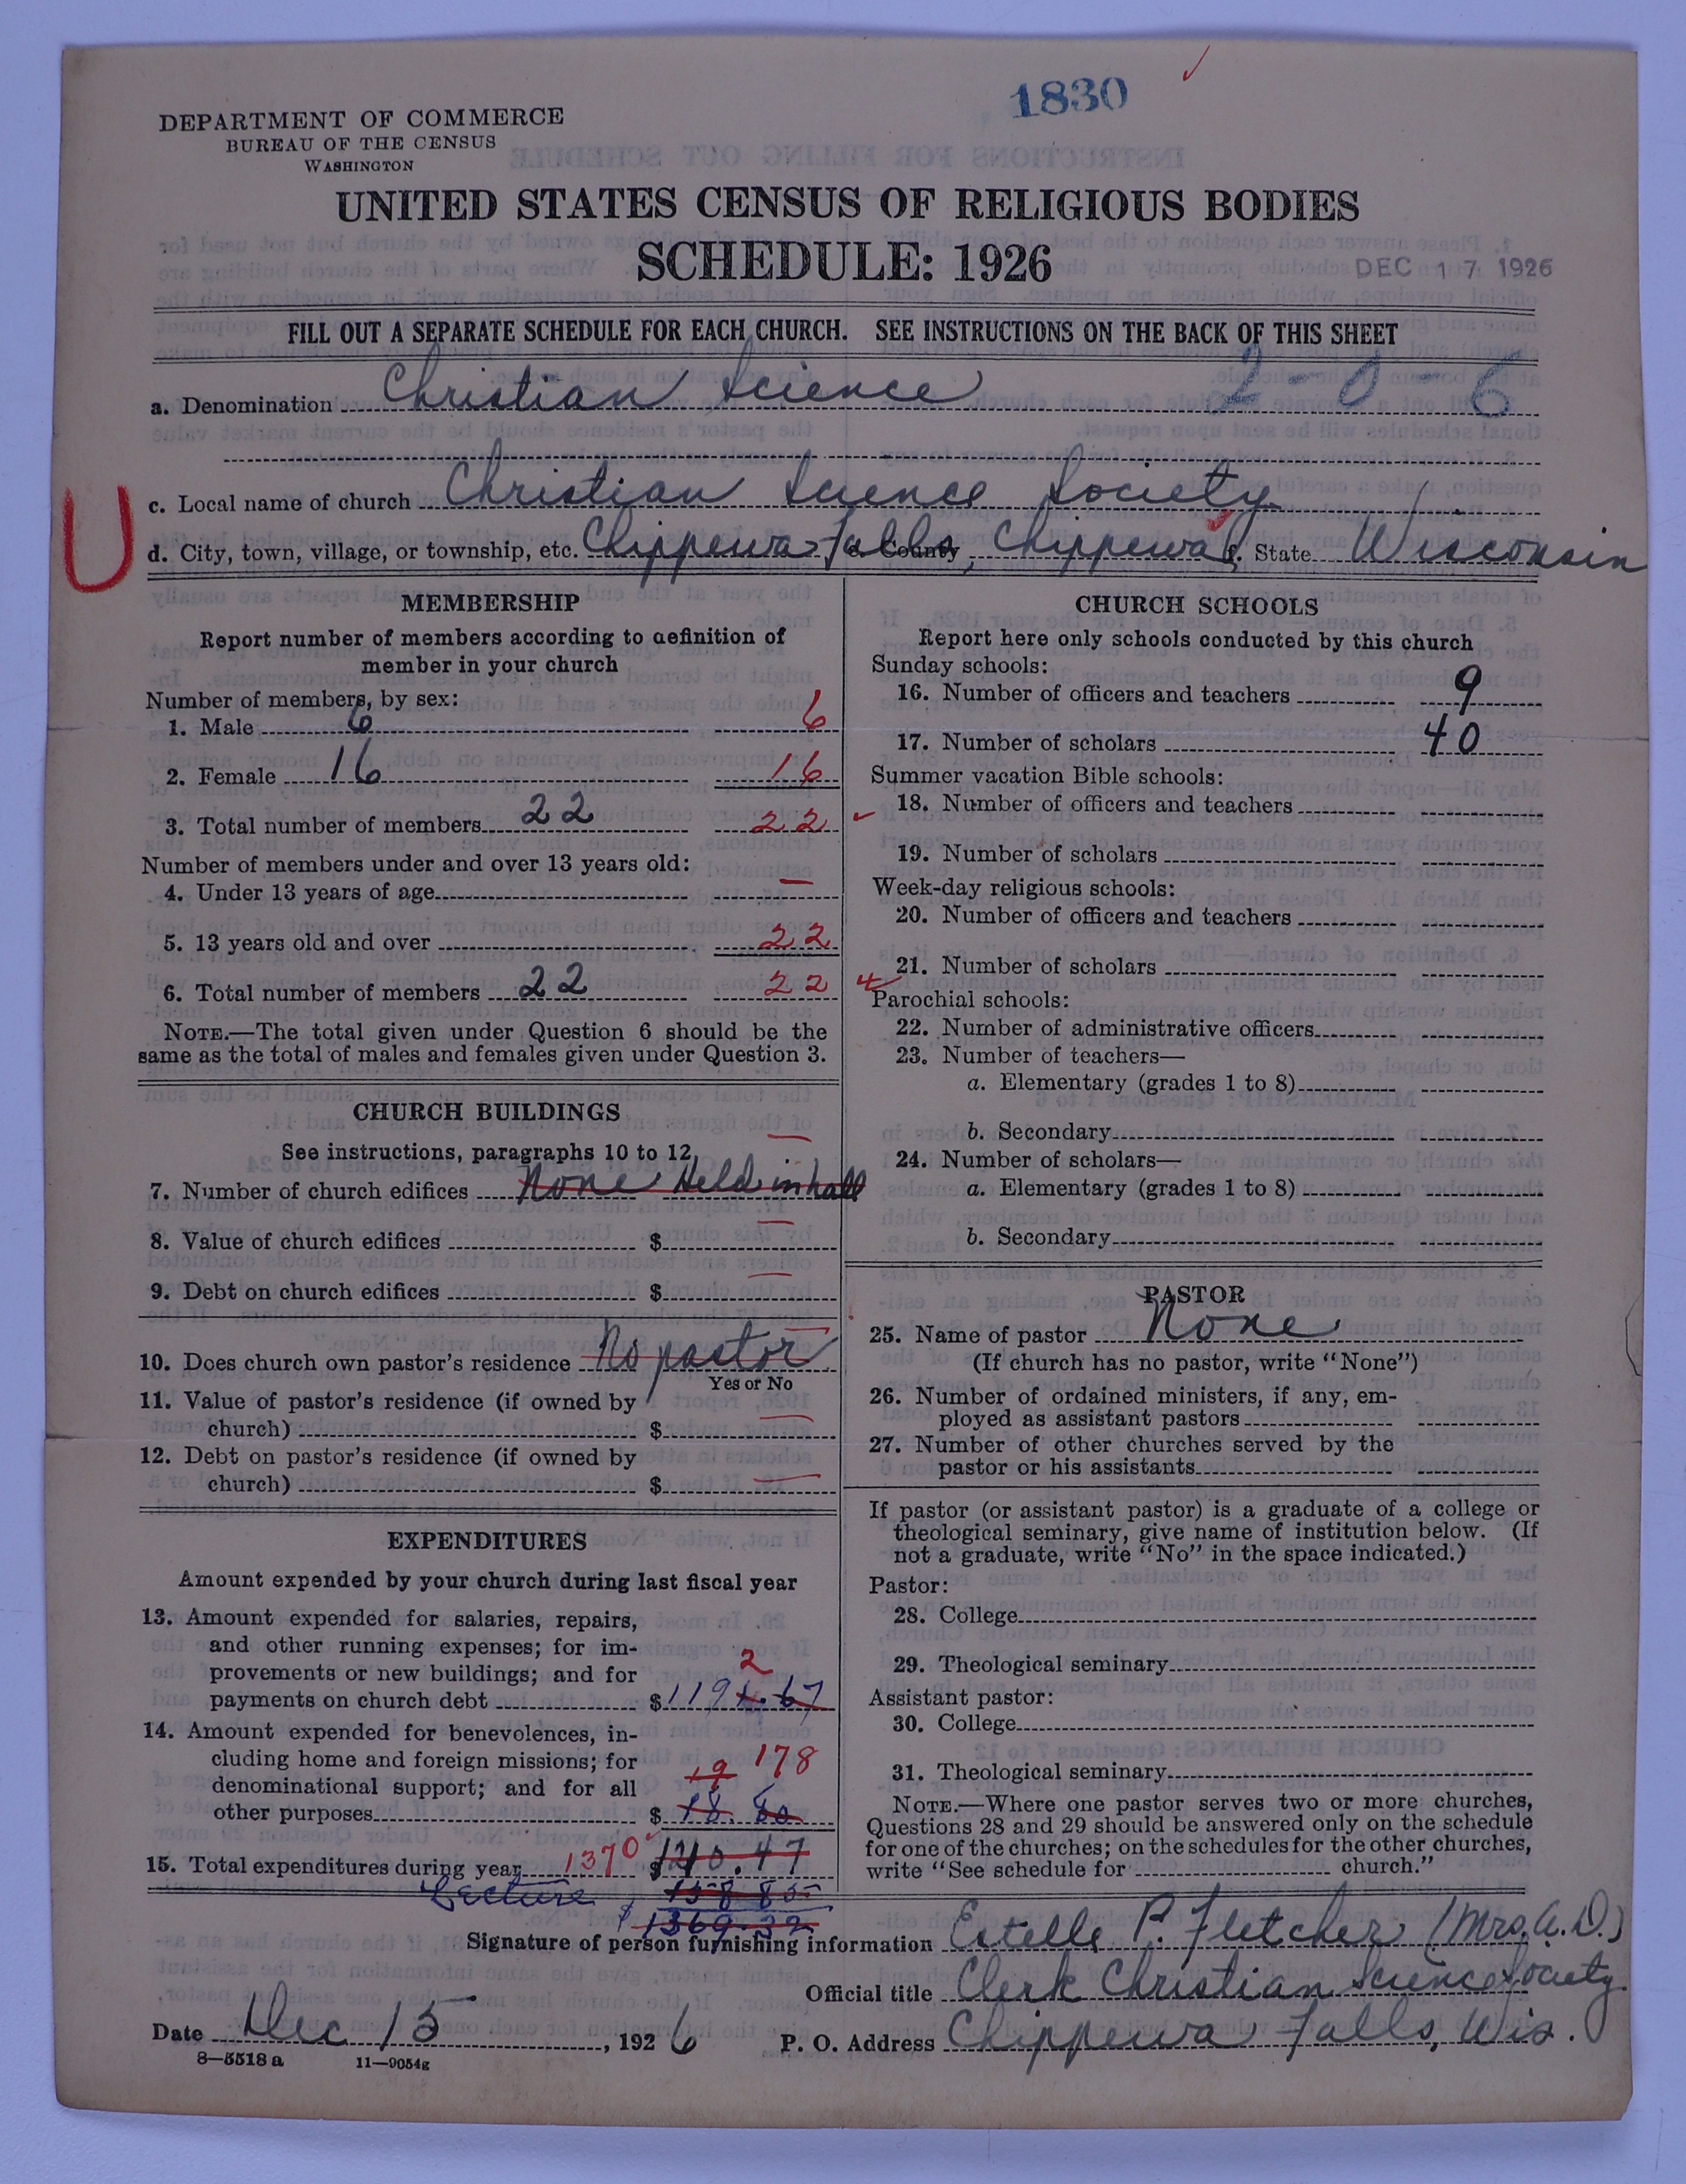 1830
DEPARTMENT OF COMMERCE
BUREAU OF THE CENSUS
WASHINGTON
UNITED STATES CENSUS OF RELIGIOUS BODIES
SCHEDULE: 1926
DEC 17 1926
FILL OUT A SEPARATE SCHEDULE FOR EACH CHURCH. SEE INSTRUCTIONS ON THE BACK OF THIS SHEET
a. Denomination Christian Science 2-0-6
c. Local name of church Christian Science Society
U
d. City, town, village, or township, etc. Chippewa Falls, e. County Chippewa f. State Wisconsin
MEMBERSHIP
Report number of members according to definition of
member in your church
Number of members, by sex:
1. Male 6 6
2. Female 16 16
3. Total number of members 22 22
Number of members under and over 13 years old:
4. Under 13 years of age —
5. 13 years old and over 22
6. Total number of members 22 22
NOTE.—The total given under Question 6 should be the
same as the total of males and females given under Question 3.
CHURCH BUILDINGS
See instructions, paragraphs 10 to 12
7. Number of church edifices None Held in hall —
8. Value of church edifices $ —
9. Debt on church edifices $ —
10. Does church own pastor's residence No pastor —
Yes or No
11. Value of pastor's residence (if owned by
church) $ —
12. Debt on pastor's residence (if owned by
church) $ —
EXPENDITURES
Amount expended by your church during last fiscal year
13. Amount expended for salaries, repairs,
and other running expenses; for im-
provements or new buildings; and for 2
payments on church debt $1191.67
14. Amount expended for benevolences, in-
cluding home and foreign missions; for 19 178
denominational support; and for all
other purposes $ 18.80
15. Total expenditures during year 1370 $1210.47
Lecture 158 85
$1369.32
CHURCH SCHOOLS
Report here only schools conducted by this church
Sunday schools:
16. Number of officers and teachers 9
17. Number of scholars 40
Summer vacation Bible schools:
18. Number of officers and teachers
19. Number of scholars
Week-day religious schools:
20. Number of officers and teachers
21. Number of scholars
Parochial schools:
22. Number of administrative officers
23. Number of teachers—
a. Elementary (grades 1 to 8)
b. Secondary
24. Number of scholars—
a. Elementary (grades 1 to 8)
b. Secondary
PASTOR
25. Name of pastor None
(If church has no pastor, write "None")
26. Number of ordained ministers, if any, em-
ployed as assistant pastors
27. Number of other churches served by the
pastor or his assistants
If pastor (or assistant pastor) is a graduate of a college or
theological seminary, give name of institution below. (If
not a graduate, write "No" in the space indicated.)
Pastor:
28. College
29. Theological seminary
Assistant pastor:
30. College
31. Theological seminary
NOTE.—Where one pastor serves two or more churches,
Questions 28 and 29 should be answered only on the schedule
for one of the churches; on the schedules for the other churches,
write "See schedule for church."
Signature of person furnishing information Estelle P. Fletcher (Mrs. A. D.)
Official title Clerk Christian Science Society
Date Dec 15, 1926 P. O. Address Chippewa Falls, Wis.
8—5518 a 11—9054g